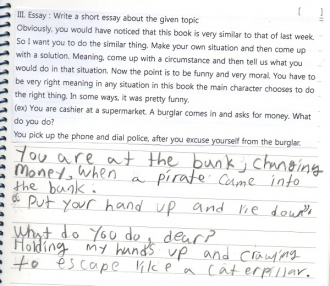 [ ]
III. Essay : Write a short essay about the given topic
Obviously, you would have noticed that this book is very similar to that of last week.
So I want you to do the similar thing. Make your own situation and then come up
with a solution. Meaning, come up with a circumstance and then tell us what you
would do in that situation. Now the point is to be funny and very moral. You have to
be very right meaning in any situation in this book the main character chooses to do
the right thing. In some ways, it was pretty funny.
(ex) You are cashier at a supermarket. A burglar comes in and asks for money. What
do you do?
You pick up the phone and dial police, after you excuse yourself from the burglar.
You are at the bank, changing
money, when a pirate came into
the bank.
"Put your hand up and lie down"
What do you do, dear?
Holding my hands up and crawling
to escape like a caterpillar.